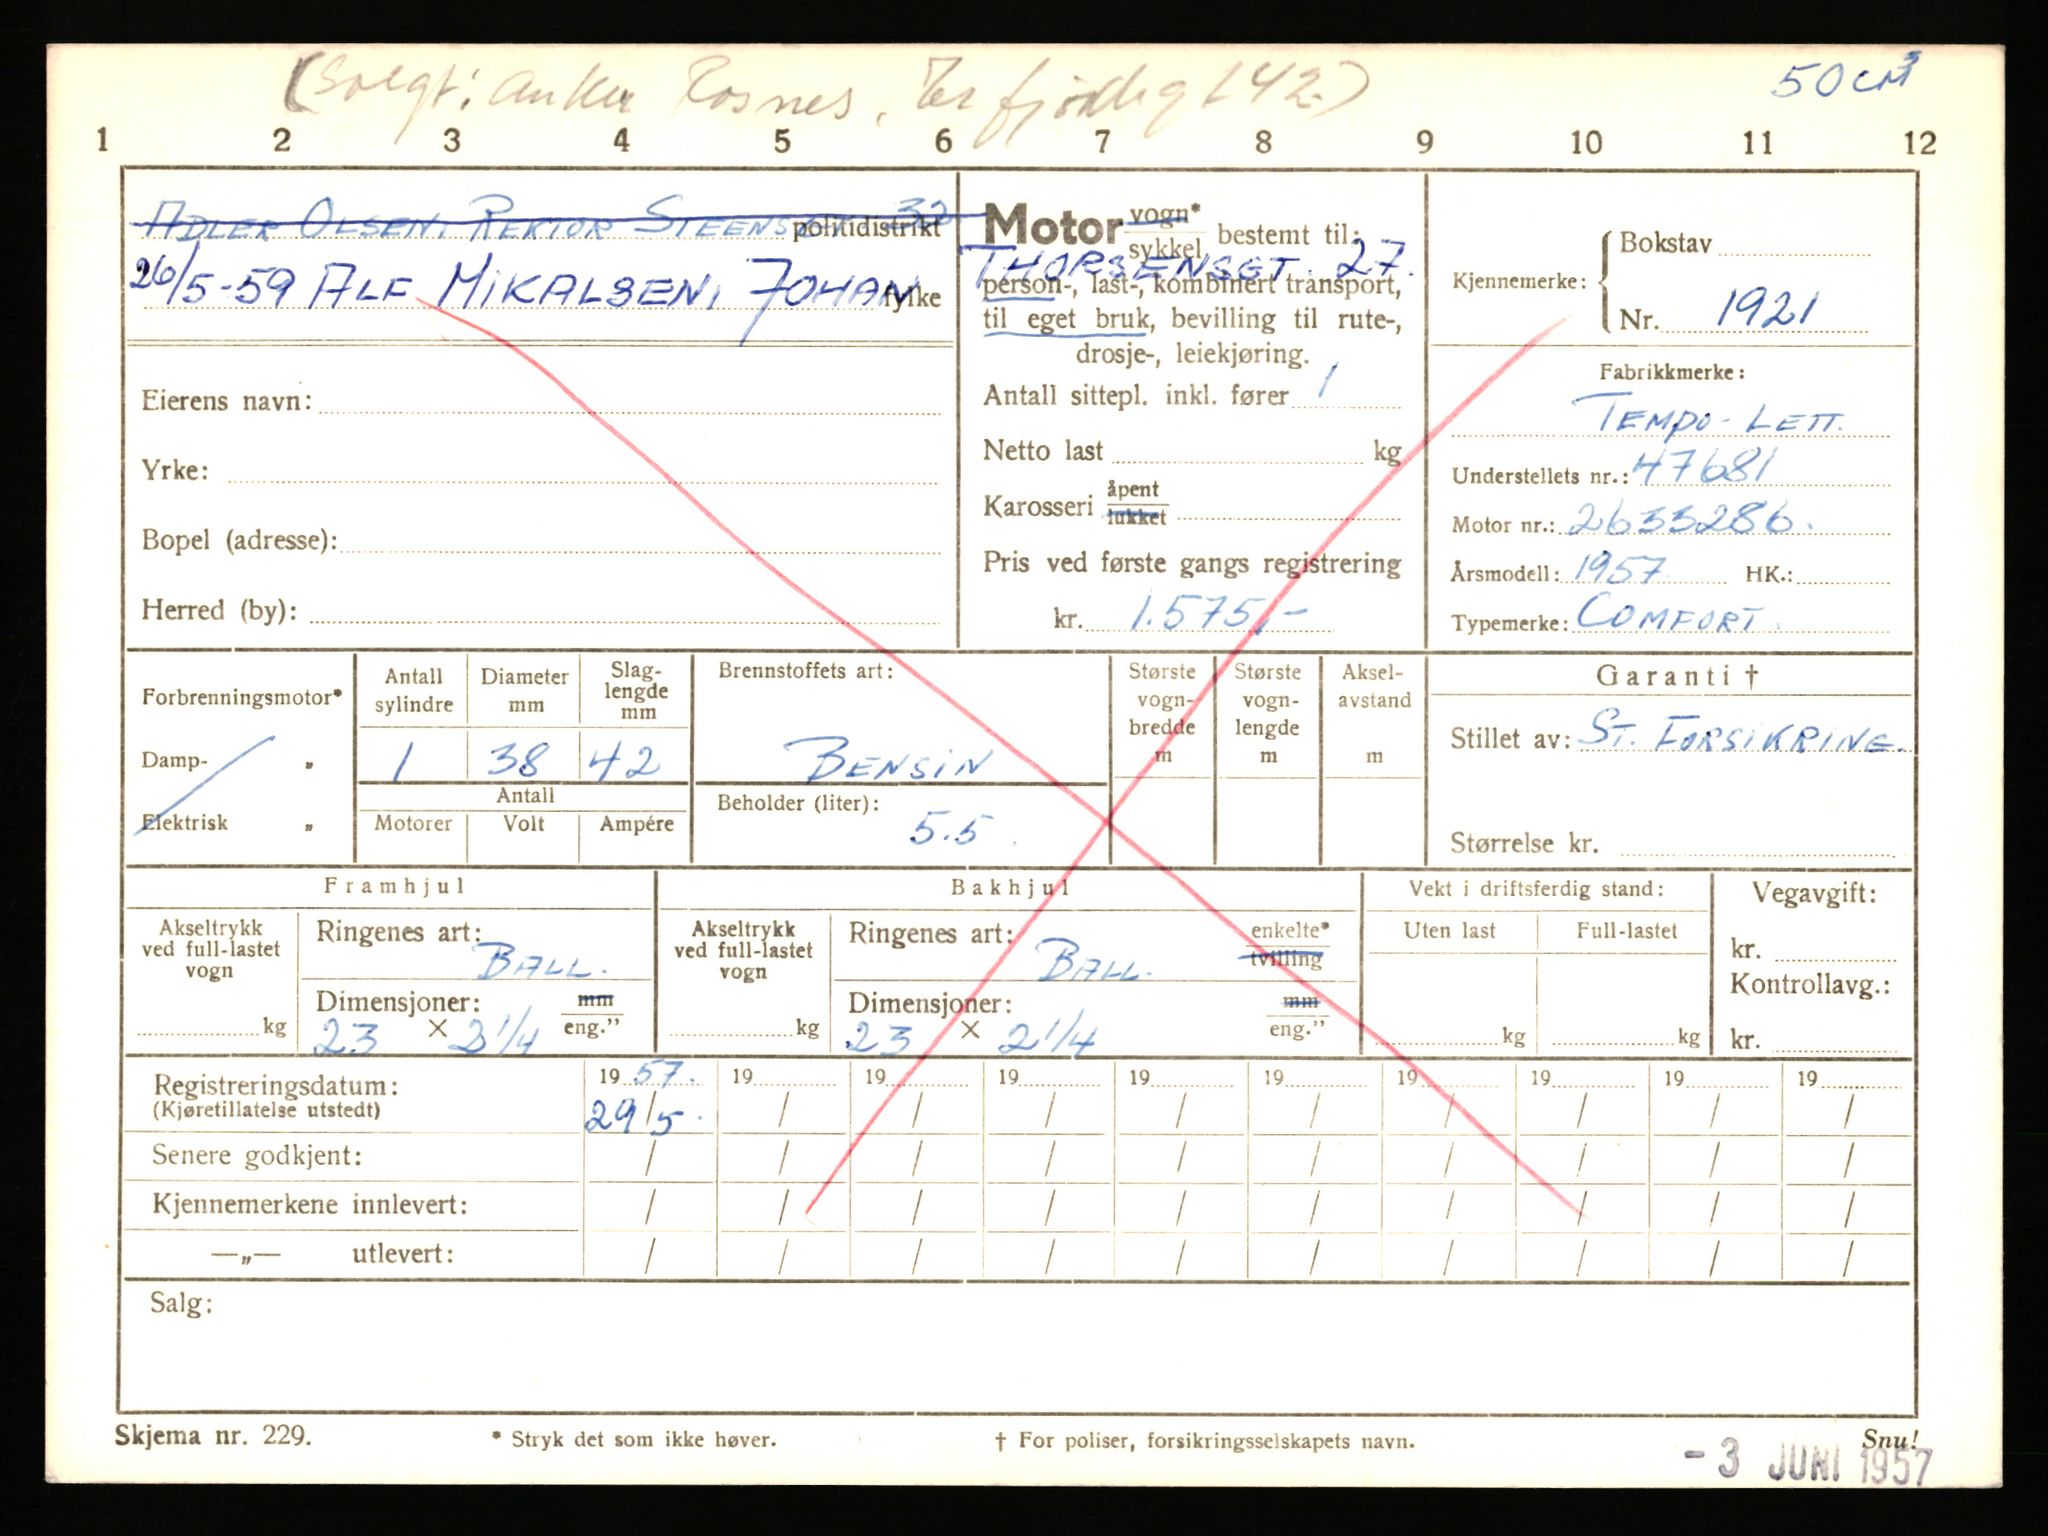 (Solgt: Anker Rosnes,
50 cm³
1 2 3 4 5 6 7 8 9 10 11 12
Adler Olsen, Rektor Steensgt 32
politidistrikt
26/5-59 Alf Mikalsen, Johan Thorsensgt. 27.
fylke
Eierens navn:
Yrke:
Bopel (adresse):
Herred (by):
Motor vogn* sykkel bestemt til:
person-, last-, kombinert transport,
til eget bruk, bevilling til rute-,
drosje-, leiekjøring.
Antall sittepl. inkl. fører 1
Netto last kg
Karosseri åpent lukket
Pris ved første gangs registrering
kr. 1.575,-
Kjennemerke: Bokstav
Nr. 1921
Fabrikkmerke:
Tempo-Lett.
Understellets nr.: 47681
Motor nr.: 2633286.
Årsmodell: 1957 HK.:
Typemerke: Comfort.
Forbrenningsmotor*
Damp- „
Elektrisk „
Antall sylindre Diameter mm Slag-lengde mm
1 38 42
Antall
Motorer Volt Ampére
Brennstoffets art:
Bensin
Beholder (liter):
5.5.
Største vogn-bredde m
Største vogn-lengde m
Aksel-avstand m
Garanti †
Stillet av: St. Forsikring.
Størrelse kr.
Framhjul
Akseltrykk ved full-lastet vogn
kg
Ringenes art:
Ball.
Dimensjoner: mm
23 × 2 1/4 eng."
Bakhjul
Akseltrykk ved full-lastet vogn
kg
Ringenes art: enkelte* tvilling
Ball.
Dimensjoner: mm
23 × 2 1/4 eng."
Vekt i driftsferdig stand:
Uten last Full-lastet
kg kg
Vegavgift:
kr.
Kontrollavg.:
kr.
Registreringsdatum: 19 57. 19 19 19 19 19 19 19 19 19
(Kjøretillatelse utstedt) 29/5. / / / / / / / / /
Senere godkjent: / / / / / / / / / /
Kjennemerkene innlevert: / / / / / / / / / /
—„— utlevert: / / / / / / / / / /
Salg:
Skjema nr. 229.
* Stryk det som ikke høver.
† For poliser, forsikringsselskapets navn.
Snu!
- 3 JUNI 1957